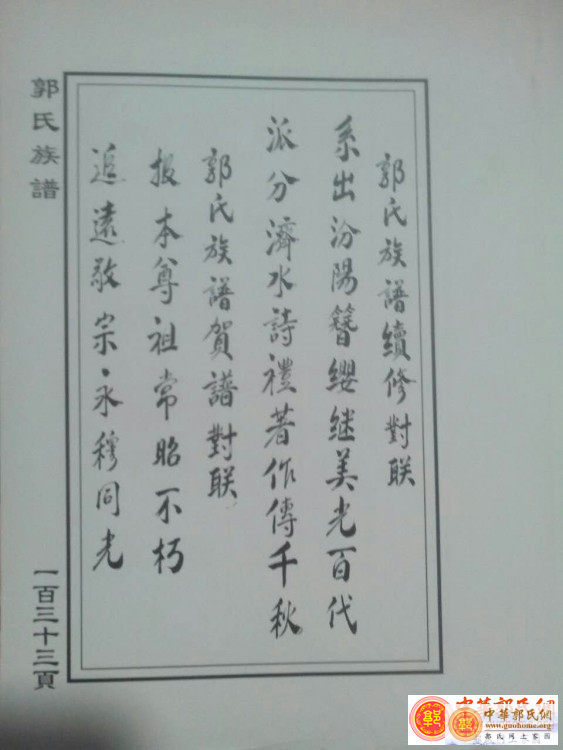 郭氏族譜續修對联
系出汾陽簪纓继美光百代
派分濟水詩禮著作傳千秋
郭氏族譜賀譜對联
报本尊祖常昭不朽
追遠敬宗永穆同光
郭氏族譜
一百三十三頁
中華郭氏網
www.guohome.org
郭氏网上家园